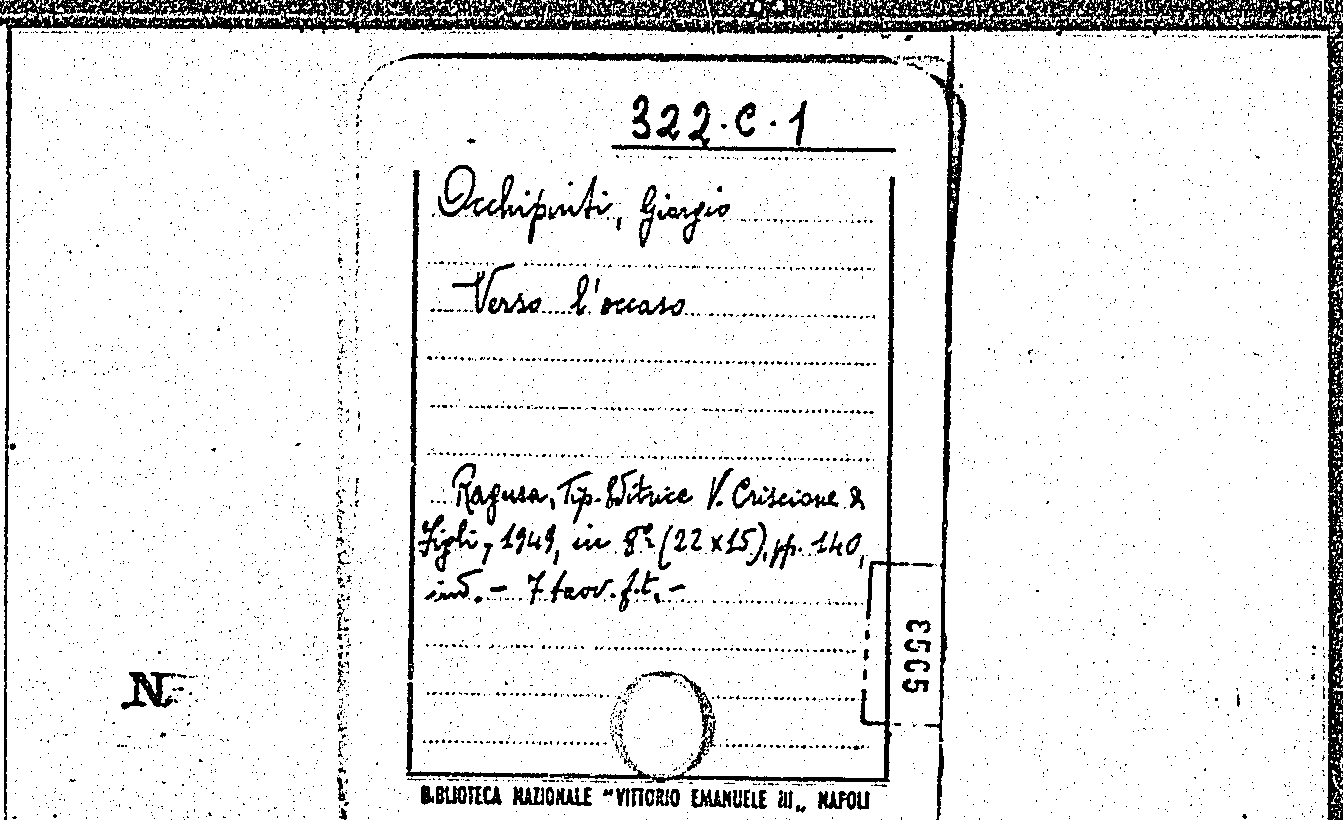 322.C.1
Occhipinti, Giorgio
Verso l'occaso
Ragusa, Tip. Editrice V. Criscione &
Figli, 1949, in 8º (22x15), pp. 140,
ind. – 7 tavv. f.t. –
N
BIBLIOTECA NAZIONALE "VITTORIO EMANUELE III„ NAPOLI